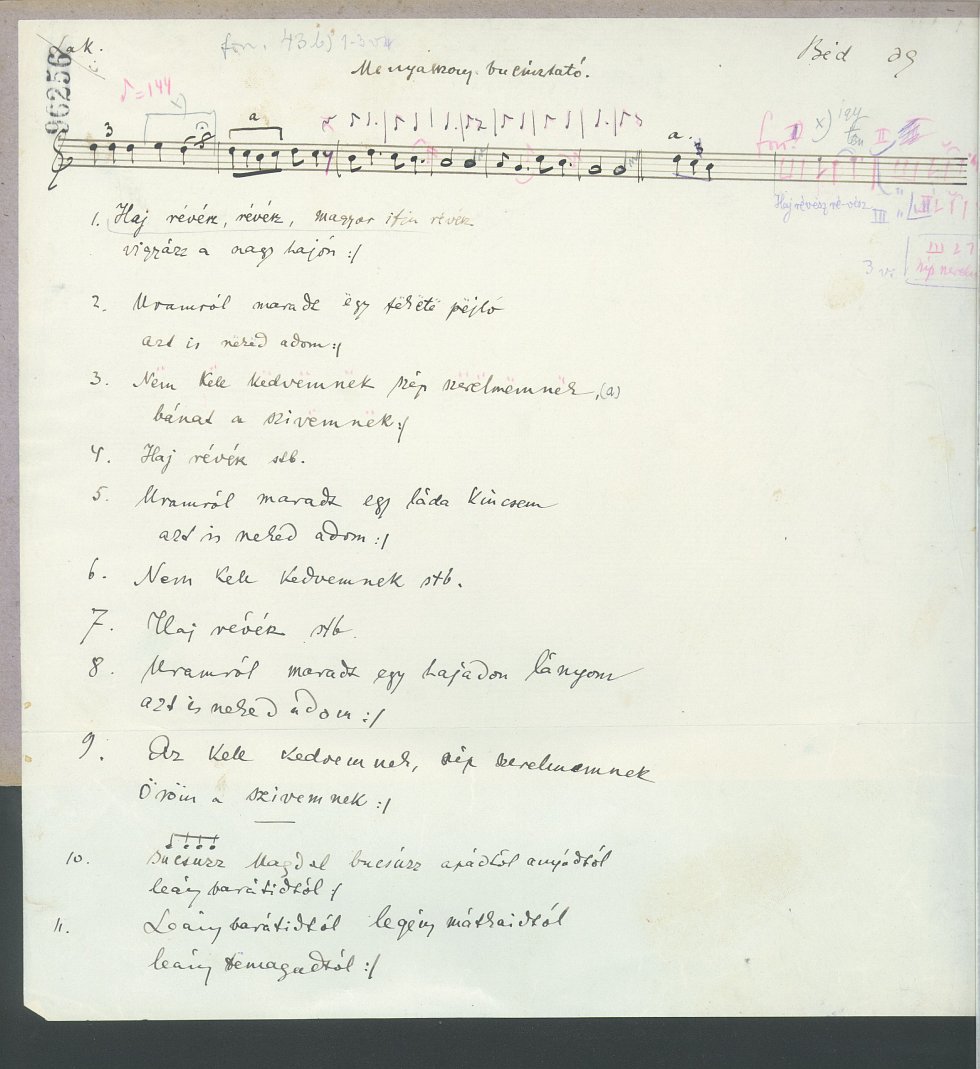 Lak.
fon. 43b) 1-3v
Béd ag
96256
Menyasszony búcsúztató.
♪=144
3
a
a.
fon:
x) így
II
Haj révész, ré-vész
III
3 v.
1. Haj révész, révész, magyar ifiu révész
vigyázz a nagy hajón :/
2. Uramról maradt ëgy fëkete pejló
azt is nekëd adom :/
3. Nëm këll kedvëmnëk szép szërëlmëmnëk, (a)
bánat a szivëmnëk :/
4. Haj révész stb.
5. Uramról maradt egy láda kincsem
azt is neked adom :/
6. Nem kell kedvemnek stb.
7. Haj révész stb.
8. Uramról maradt egy hajadon lányom
azt is neked adom :/
9. Az kell kedvemnek, szép szerelmemnek
Öröm a szivemnek :/
10. Bucsuzz Magdal bucsúzz apádtól anyádtól
leány barátidtól :/
11. Leány barátidtól legény mátkaidtól
leány temagadtól :/